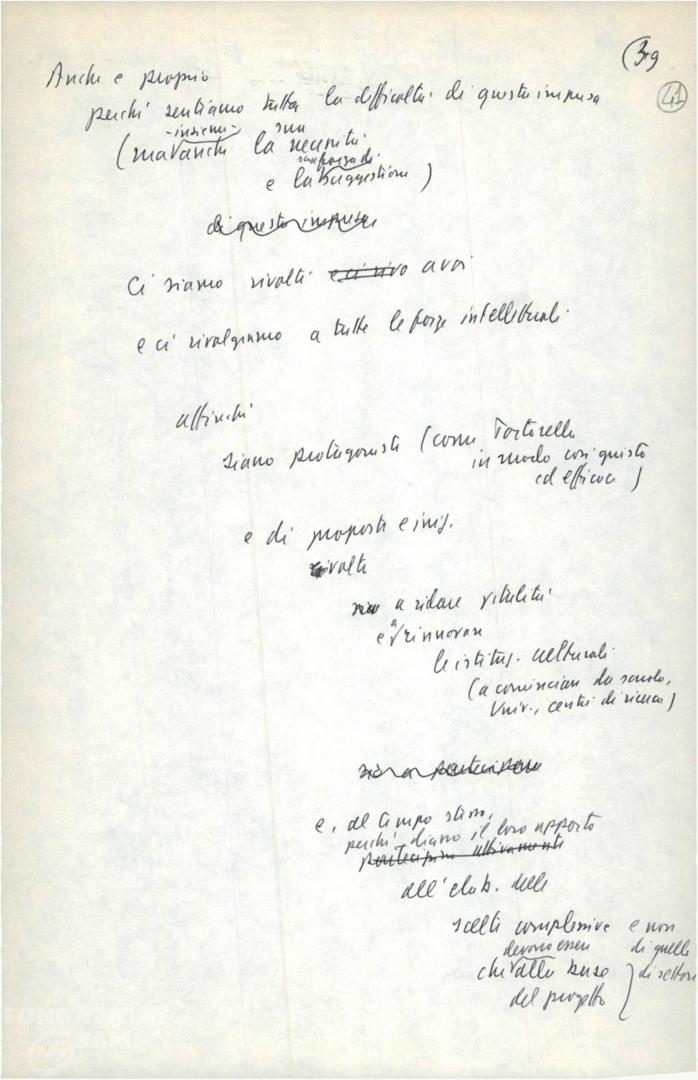 39
41
Anche e proprio
perché sentiamo tutta la difficoltà di questa impresa
-insieme- sua
(ma anche la necessità
sua forza di
e la suggestione)
di questa impresa
Ci siamo rivolti e ci rivo a voi
e ci rivolgiamo a tutte le forze intellettuali
affinché
siano protagonisti (come Tortorella
in modo così giusto
ed efficace)
e di proposte e iniz.
rivolte
a ridare vitalità
e a rinnovare
le istituz. culturali
(a cominciare da scuola,
Univ., centri di ricerca)
sia a partecipare
e, al tempo stesso,
perché diano il loro apporto
partecipino attivamente
all'elab. delle
scelte complessive e non
devono essere di quelle
che alla base di settore
del progetto